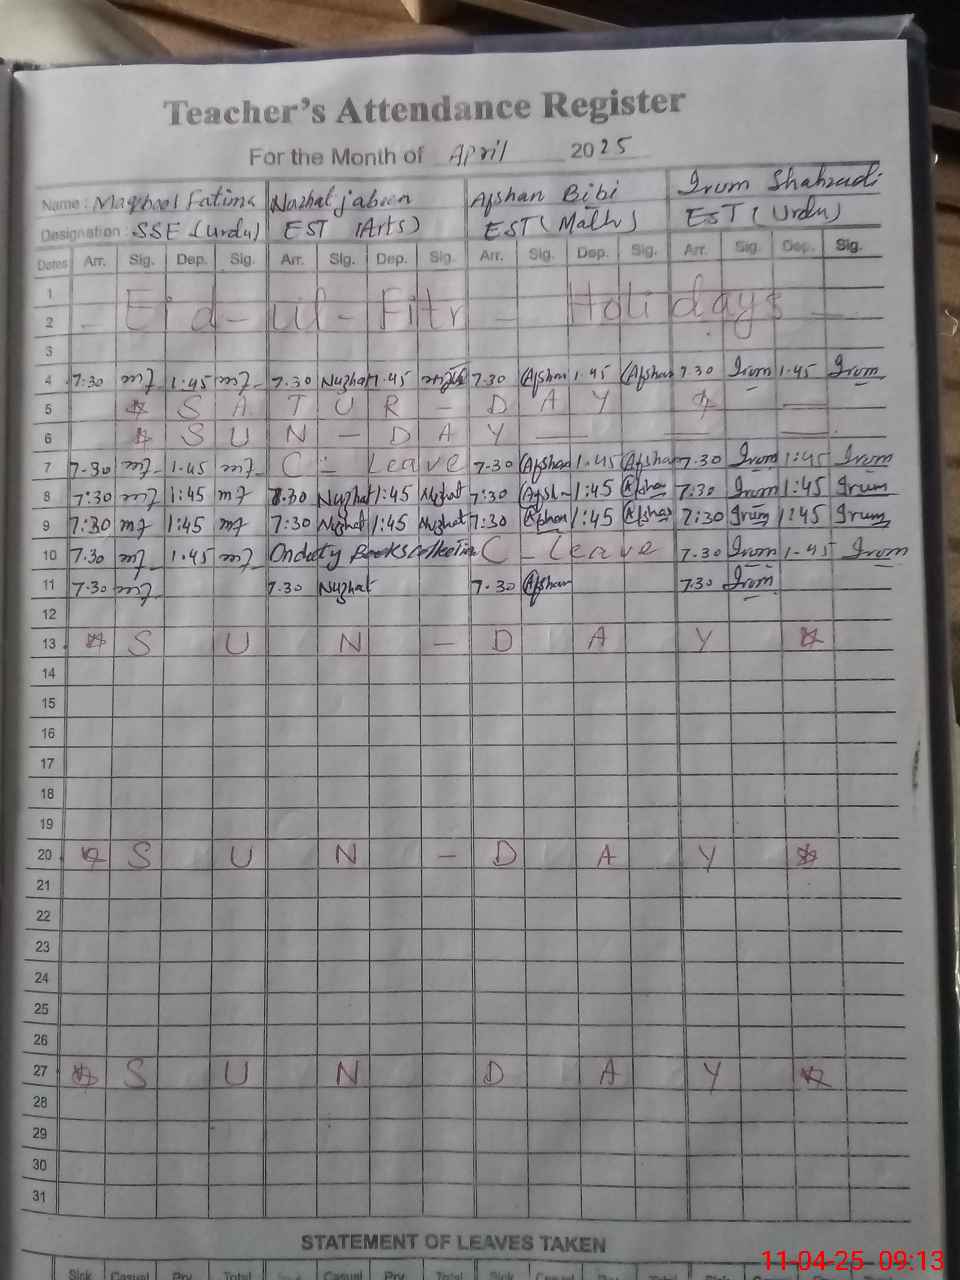 Teacher's Attendance Register
For the Month of April 2025
Name: Maqbool Fatima Nuzhat jabeen Afshan Bibi Irum Shahzadi
Designation: SSE (Urdu) EST (Arts) EST (Math) EST (Urdu)
Dates Arr. Sig. Dep. Sig. Arr. Sig. Dep. Sig. Arr. Sig. Dep. Sig. Arr. Sig. Dep. Sig.
1
2 - Eid-ul-Fitr - Holidays -
3
4 7:30 mf 1.45 mf 7.30 Nuzhat 1.45 7.30 Afshan 1.45 Afshan 7.30 Irum 1.45 Irum
5 SATUR-DAY
6 SUN-DAY
7 7-30 mf 1.45 mf C-Leave 7-30 Afshan 1.45 Afshan 7.30 Irum 1:45 Irum
8 7:30 mf 1:45 mf 7.30 Nuzhat 1:45 Nuzhat 7:30 Afshan 1:45 Afshan 7:30 Irum 1:45 Irum
9 7:30 mf 1:45 mf 7:30 Nuzhat 1:45 Nuzhat 7:30 Afshan 1:45 Afshan 7:30 Irum 1:45 Irum
10 7.30 mf 1.45 mf Onduty Books Collection C-Leave 7.30 Irum 1-45 Irum
11 7.30 mf 7.30 Nuzhat 7.30 Afshan 7.30 Irum
12
13 SUN-DAY
14
15
16
17
18
19
20 SUN-DAY
21
22
23
24
25
26
27 SUN DAY
28
29
30
31
STATEMENT OF LEAVES TAKEN
Sick Casual Prv. Total Casual Prv. Total Sick Casual Prv. Total Sick
11-04-25 09:13